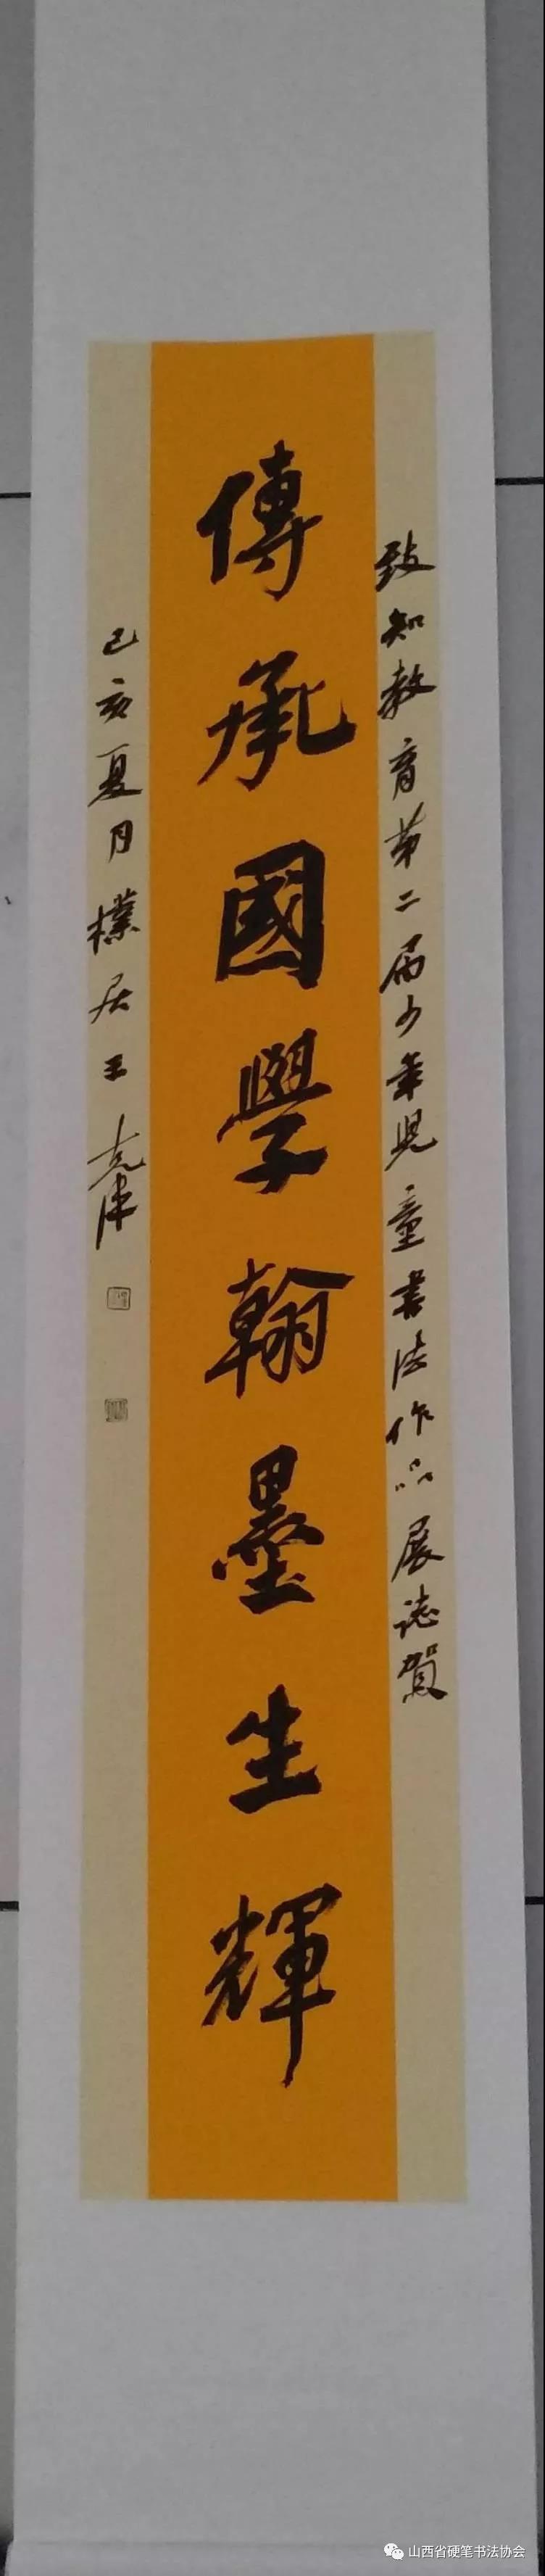 致知教育第二届少年児童書法作品展誌賀
傳承國學翰墨生輝
己亥夏月樸居王克津
山西省硬笔书法协会